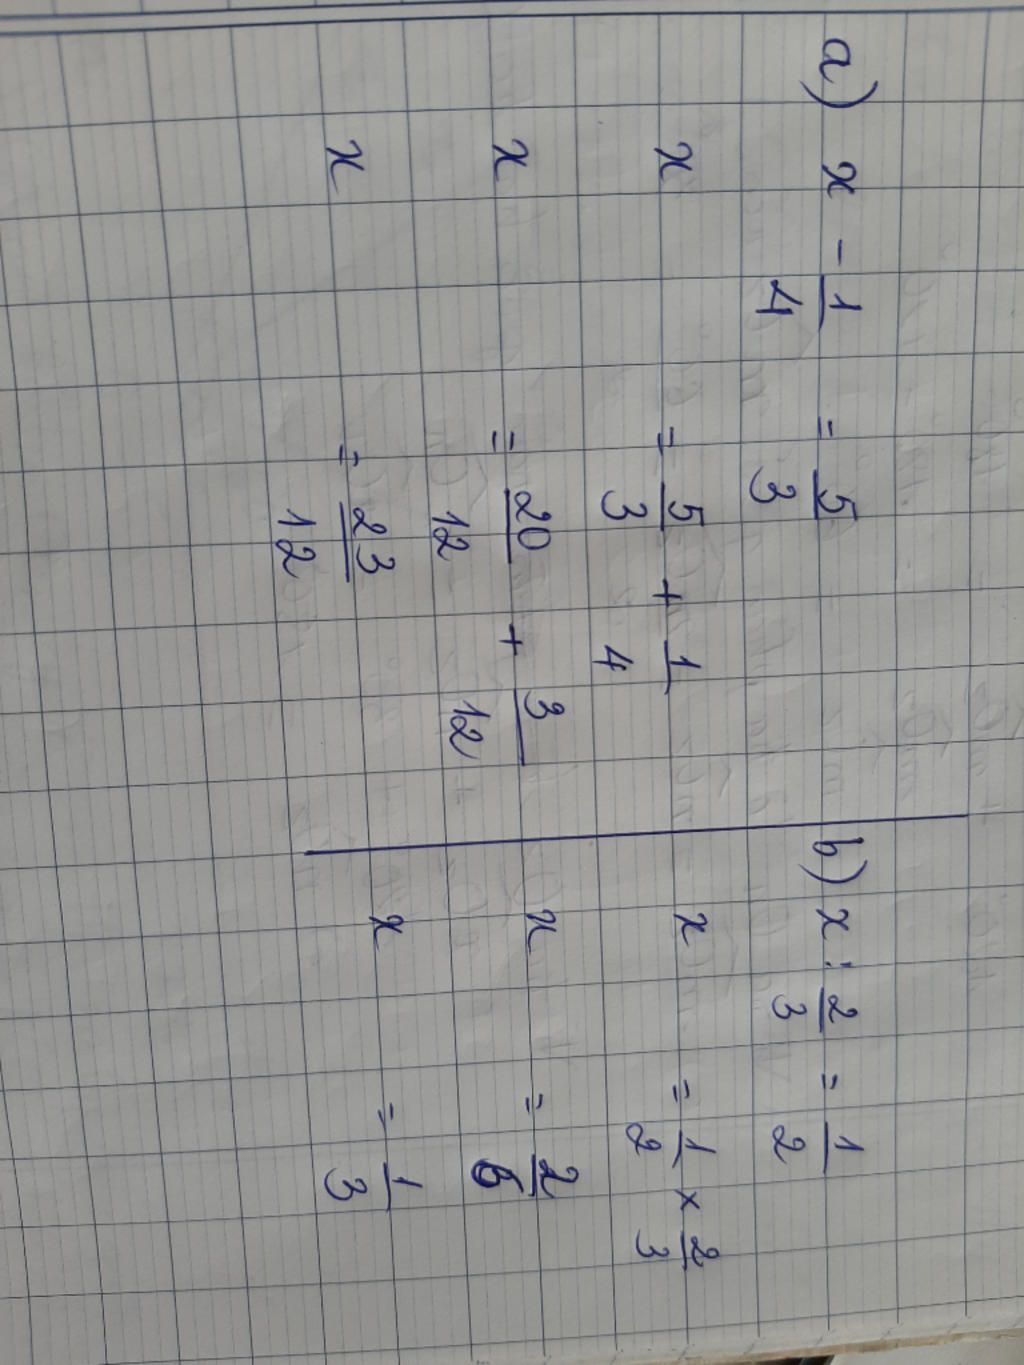 a) x - 1/4 = 5/3
x = 5/3 + 1/4
x = 20/12 + 3/12
x = 23/12
b) x : 2/3 = 1/2
x = 1/2 × 2/3
x = 2/6
x = 1/3